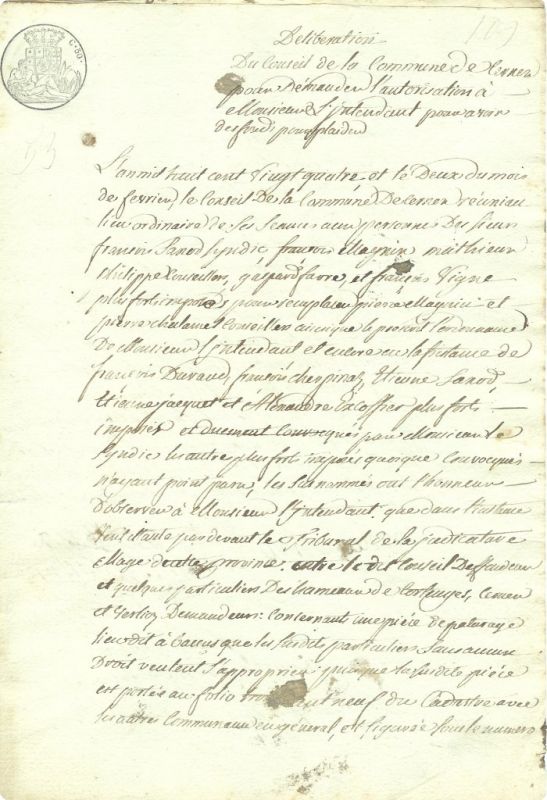 107
C. 50.
Deliberation
Du Conseil de la Commune de Cernex
pour demander l'autorisation à
Monsieur l'Intendant pour avoir
des fonds pour plaider
53
L'an mil huit cent vingt quatre et le Deux du mois
de fevrier, le Conseil De la Commune De Cernex réuni au
lieu ordinaire de ses seances aux personnes Des sieurs
françois Sanod syndic françois Magnin mathieu
philippe Conseillers, gaspard favre, et françois Vigne
plus fort imposés pour remplacer pierre Magnin et
pierre Conseillers ainsi que le prescrit l'ordonnance
De Monsieur l'Intendant et encore en la présence de
françois Duraud, françois cherpinaz, Etienne Sanod,
Etienne jacquet et Alexandre Excoffier plus forts
imposés et duement Convoqués par Monsieur le
syndic les autres plus forts imposés quoique Convocqués
n'ayant point paru, les susnommés ont l'honneur
D'observer à Monsieur l'Intendant que dans l'instance
par devant le Tribunal de la judicature
Mage de cette province, entre le dit Conseil Deffendeur
et quelques particuliers Des hameaux de
et Demandeurs: Concernant une pièce de paturage
lieudit à que les susdits particuliers sans aucun
Droit veulent s'approprier; puisque la susdite pièce
est portée au folio neuf du Cadastre avec
les autres Communaux en général, et figurée sous le numero